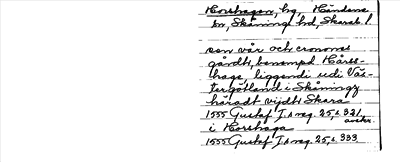 Horshagen, hg, Händene
sn, Skånings hd, Skarab. l.
den vår och cronones
gårdh, benempd Hårss-
hage, liggendi udi Väs-
tergötland i Skåningz
häradt vijdh Skara
1555 Gustaf I:s reg. 25, s 321
avskr.
i Horshaga
1555 Gustaf I:s reg. 25, s 333